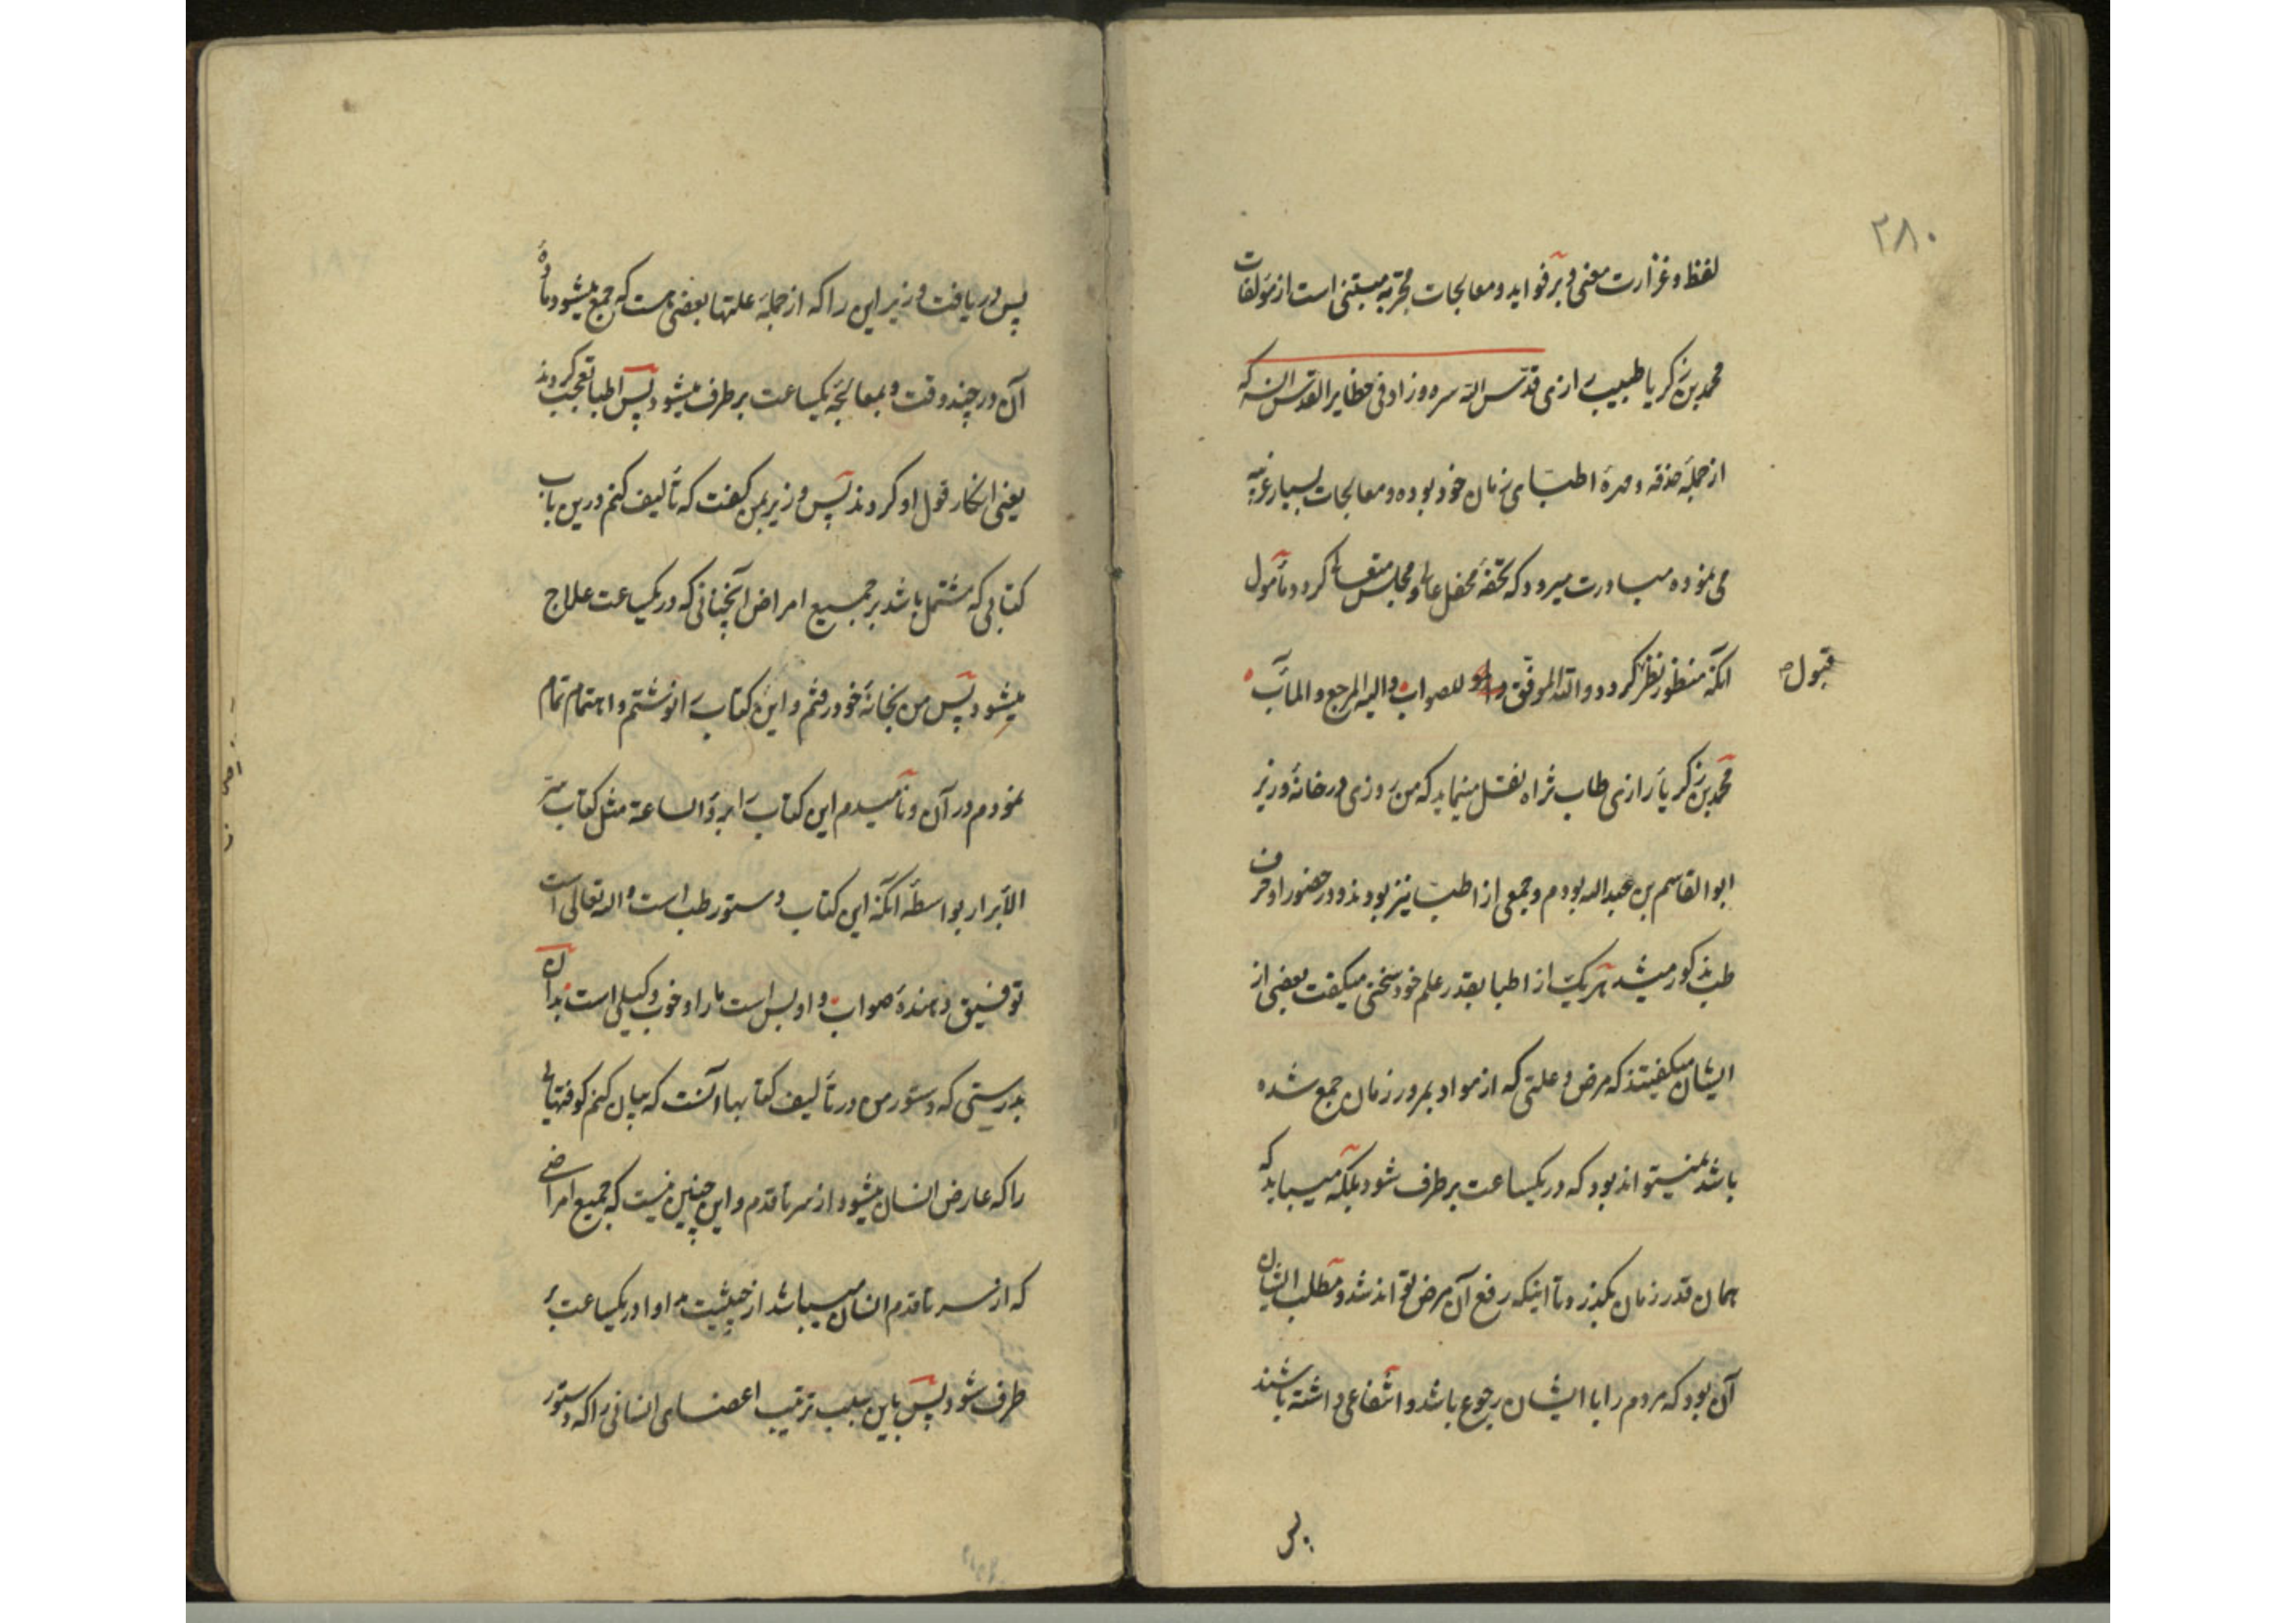 ۲۸۰
لفظ و غزارت معنی و بر فواید و معالجات مجربه مبتنی است از مؤلفات
محمد بن زکریا طبیب رازی قدس الله سره و زاد فی حظایر القدس انسه که
از جمله حذقه و مهرهٔ اطبای زمان خود بوده و معالجات بسیار غریبه
می نموده مبادرت میرود که تحفهٔ محفل عالی و مجلس متعالی کردد مأمول
انکه منظور نظر کردد و الله الموفق للصواب و الیه المرجع و المآب
قبول
محمد بن زکریا رازی طاب ثراه نقل مینماید که من روزی در خانهٔ وزیر
ابوالقاسم بن عبدالله بودم و جمعی از اطبا نیز بودند و در حضور او حرف
طب مذکور میشد هر یک از اطبا بقدر علم خود سخنی میکفت بعضی از
ایشان میکفیتند که مرض و علتی که از مواد بمرور زمان جمع شده
باشد نمیتواند بود که در یکساعت برطرف شود بلکه میباید که
همان قدر زمان بکذرد تا اینکه رفع آن مرض تواند شد و مطلب ایشان
آن بود که مردم را با ایشان رجوع باشد و انتفاعی داشته باشند
پس
پس دریافت وزیر این را که از جمله علتها بعضی هست که جمع میشود مادهٔ
آن در چند وقت و بمعالجهٔ یکساعت برطرف میشود پس اطبا تعجب کردند
یعنی انکار قول او کردند پس وزیر بمن کفت که تألیف کنم درین باب
کتابی که مشتمل باشد بر جمیع امراض آنچنانی که در یکساعت علاج
میشود پس من بخانهٔ خود رفتم و این کتاب را نوشتم و اهتمام تمام
نمودم در آن و نامیدم این کتاب را برؤ الساعة مثل کتاب سر
الأبرار بواسطهٔ انکه این کتاب دستور طب است و الله تعالی است
توفیق دهندهٔ صواب و او بس است ما را و خوب وکیلی است بدان
بدرستی که دستور من در تألیف کتابها آنست که بیان کنم کوفتهایی
را که عارض انسان میشود از سر تا قدم و این چنین نیست که جمیع امراضی
که از سر تا قدم انسان میباشد از حیثیت مداوا در یکساعت بر
طرف شود پس باین سبب ترتیب اعضای انسانی را که دستور